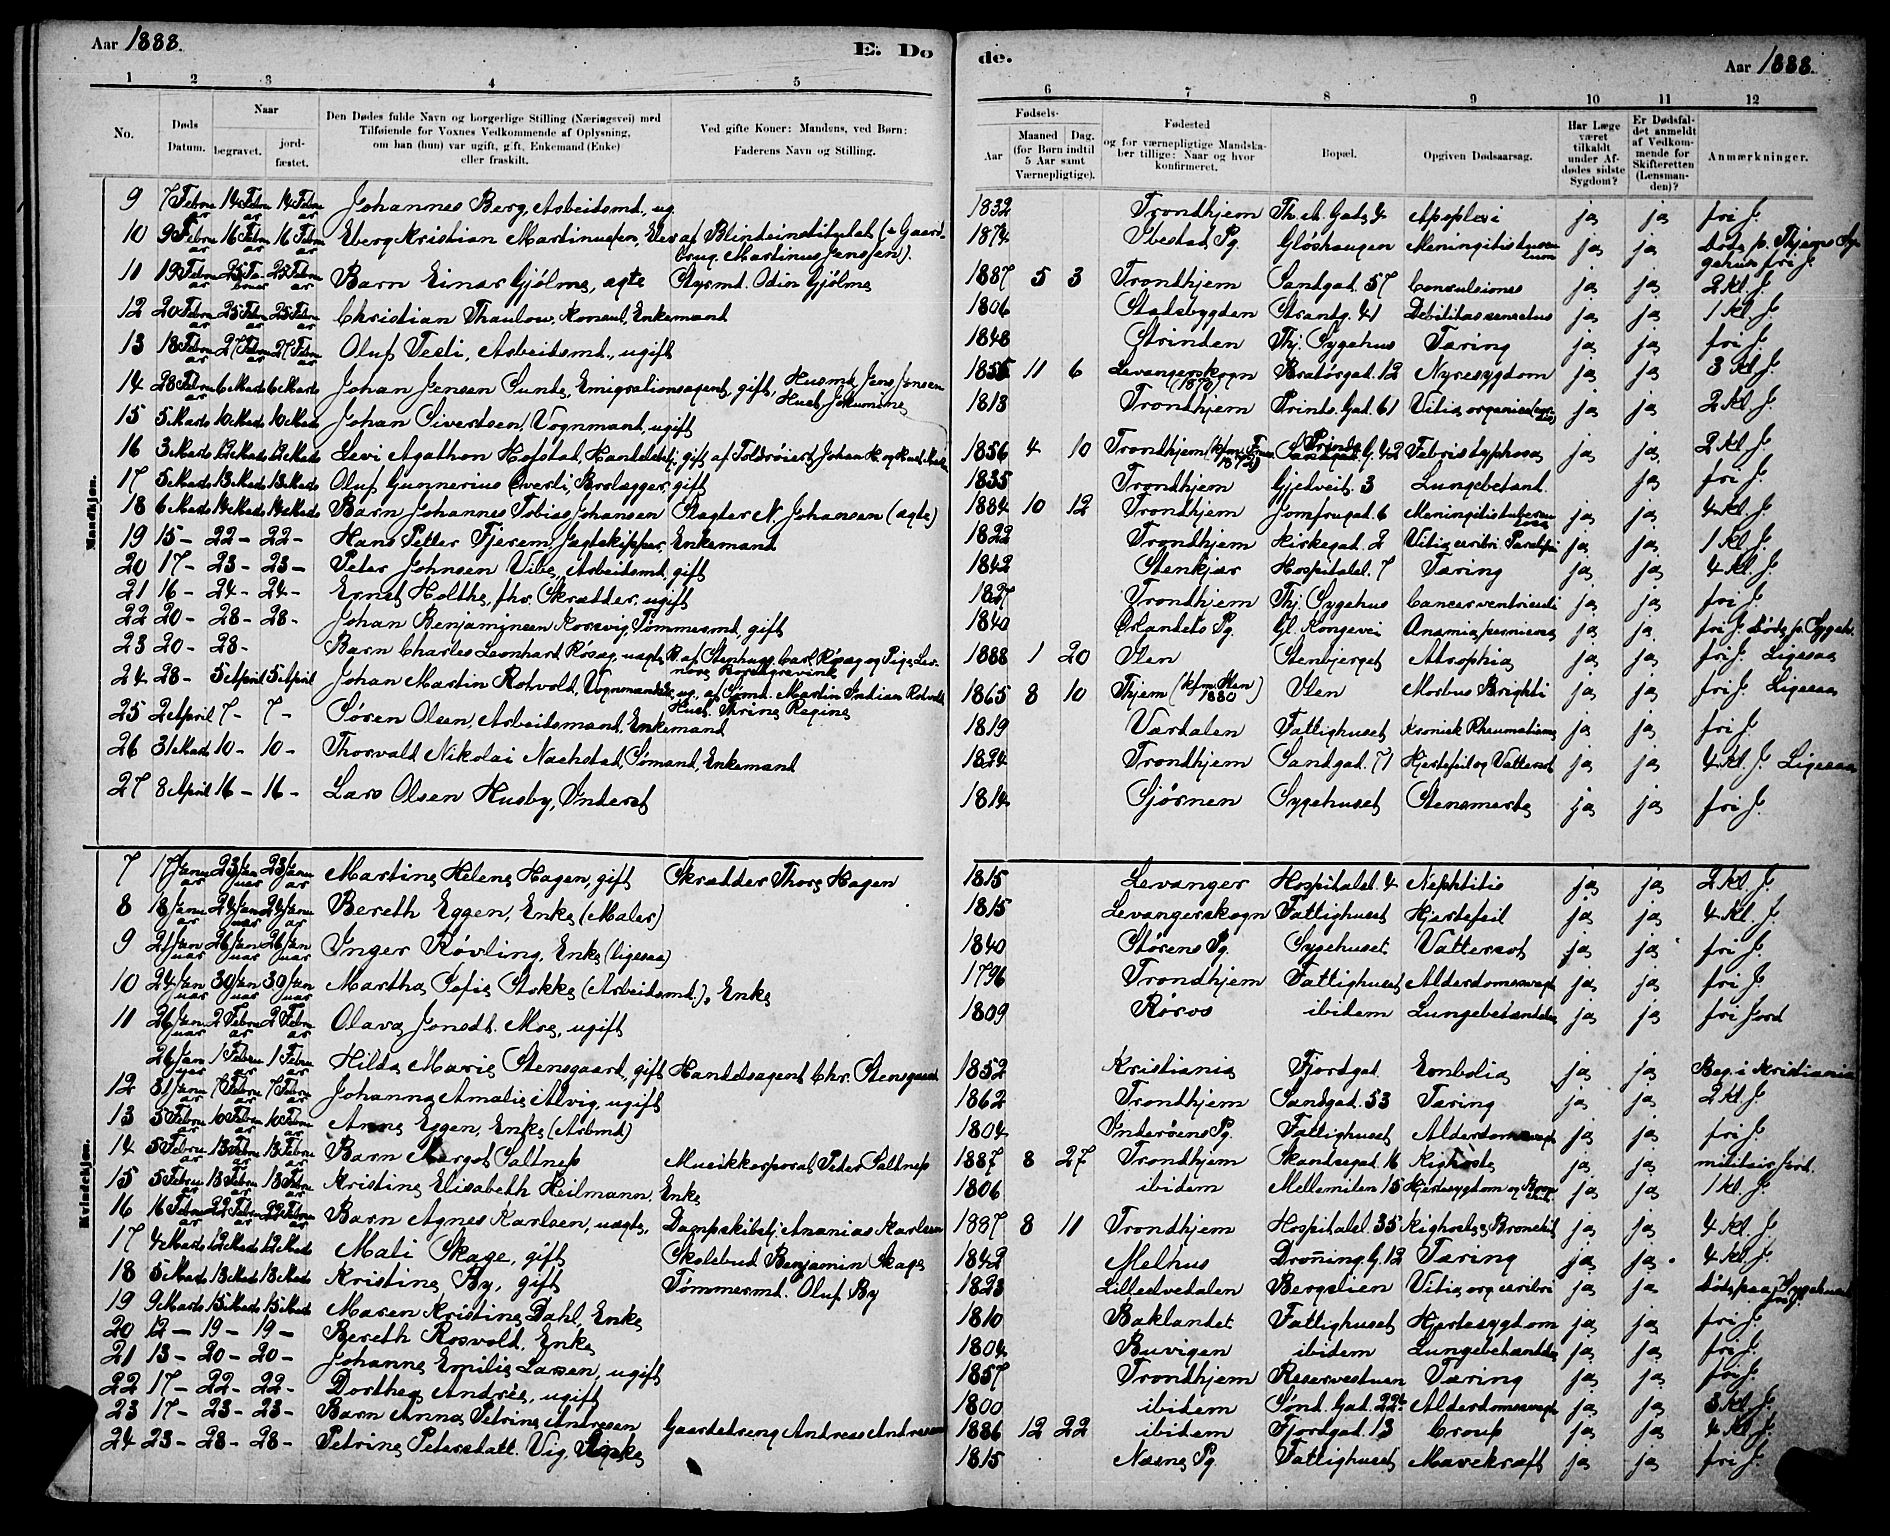 Aar 1888.
E. Do
de.
Aar 1888.
1 2 3 4 5
6 7 8 9 10 11 12
No. Døds Datum. Naar begravet. jordfæstet. Den Dødes fulde Navn og borgerlige Stilling (Næringsvei) med Tilføiende for Voxnes Vedkommende af Oplysning, om han (hun) var ugift, gift, Enkemand (Enke) eller fraskilt. Ved gifte Koner: Mandens, ved Børn: Faderens Navn og Stilling.
Fødsels- Aar Maaned (for Børn indtil 5 Aar samt Værnepligtige). Dag. Fødested og for værnepligtige Mandskaber tillige: Naar og hvor konfirmeret. Bopæl. Opgiven Dødsaarsag. Har Læge været tilkaldt under Afdødes sidste Sygdom? Er Dødsfaldet anmeldt af Vedkommende for Skifteretten (Lensmanden)? Anmærkninger.
Mandkjøn.
9 7 Februar 14 Februar 14 Februar Johannes Berg, Arbeidsmd., ug. 1832 Trondhjem Th. A. Gade 4 Apoplexi ja ja fri J.
10 9 Februar 16 Februar 16 Februar Eberg Kristian Martinussen, Elev af Blindeinstitutet (+ Gaardbrug. Martinus Jenssen). 1874 Ibestad Pg. Gløshaugen Meningitis ja ja døde p. Thjems Sygehus fri J.
11 19 Februar 25 Februar 25 Februar Barn Einar Gjølme, ægte Styrmd. Odin Gjølme 1887 5 3 Trondhjem Sandgad. 57 Convulsiones ja ja 2 kl. J.
12 20 Februar 25 Februar 25 Februar Christian Thaulow, Konsul, Enkemand 1806 Stadsbygden Strandg. 41 Debilitas senectus ja ja 1 kl. J.
13 18 Februar 27 Februar 27 Februar Oluf Testi, Arbeidsmd., ugift 1848 Strinden Thj. Sygehus Tæring ja ja fri J.
14 28 Februar 6 Marts 6 Marts Johan Jensen Sunde, Emigrationsagent, gift, Husmd. Jens Jensen Hust. 1855 11 6 Levangerskogn (1872) Bratørgad. 12 Nyresygdom ja ja 3 kl. J.
15 5 Marts 10 Marts 10 Marts Johan Sivertsen, Vognmand, ugift 1813 Trondhjem Prinds. Gad. 61 Vitia organica ja ja 2 kl. J.
16 3 Marts 12 Marts 12 Marts Levi Agathon Hofstad, Handelsbetj., gift af Toldrøiert Johan H. og Hust. 1856 4 10 Trondhjem Prinds G. 42 Febris typhosa ja ja 2 kl. J.
17 5 Marts 13 Marts 13 Marts Oluf Gunnerius Overli, Brolægger, gift 1835 Trondhjem Gjedveit. 3 Lungebetænd. ja fri J.
18 6 Marts 14 Marts 14 Marts Barn Johannes Tobias Johansen Slagter N. Johansen (ægte) 1884 10 12 Trondhjem Jomfrugad. 6 Meningitis tuberculosa ja ja 4 kl. J.
19 15 - 22 - 22 - Hans Petter Fjerem, Jagtskipper, Enkemand 1822 Trondhjem Kirkegad. 2 Vitia cerebri ja ja 1 kl. J.
20 17 - 23 - 23 - Peter Johnsen Vibe, Arbeidsmd. gift 1842 Stenkjær Hospitalsl. 7 Tæring ja ja 4 kl. J.
21 16 - 24 - 24 - Ernst Holthe, fhv. Skrædder, ugift 1827 Trondhjem Thj. Sygehus Cancer ventriculi ja ja fri J.
22 20 - 28 - 28 - Johan Benjaminsen Korsvig, Tømmesmd, gift 1840 Ørlandets Pg. Gl. Kongevei Anæmia perniciosa ja ja fri J. døde p. Sygeh.
23 20 - 28 - Barn Charles Leonhard Røsæg, uægte, af Stenhugg. Carl Røsæg og Pige 1888 1 20 Ilen Stenbjerget Atrophia ja ja fri J. Ligesaa
24 28 - 5 April 5 April Johan Martin Rotvold, Vognmand, ug., af Sømd. Martin Rotvold Hust. Thrine Regine 1865 8 10 Thjem (kfm. Ilen 1880) Ilen Morbus Brighti ja ja fri J. Ligesaa
25 2 April 7 - 7 - Søren Olsen, Arbeidsmand, Enkemand 1819 Værdalen Fattighuset Kronisk Rheumatisme ja ja fri J.
26 31 Marts 10 - 10 - Thorvald Nikolai Nachstad, Sømand, Enkemand 1824 Trondhjem Sandgad. 71 Hjertefeil og Vattersot ja ja 4 kl. J. Ligesaa
27 8 April 16 - 16 - Lars Olsen Husby, Inderst 1814 Bjørnen Sygehuset Stensmerte ja ja fri J.
Kvindekjøn.
7 17 Januar 23 Januar 23 Januar Martine Helene Hagen, gift Skrædder Thore Hagen 1815 Levanger Hospitalsl. 4 Nephtitis ja ja 2 kl. J.
8 18 Januar 24 Januar 24 Januar Bereth Eggen, Enke (Maler) 1815 Levangerskogn Fattighuset Hjertefeil ja ja 4 kl. J.
9 21 Januar 26 Januar 26 Januar Inger Røvling, Enke (ligesaa) 1840 Størens Pg. Sygehuset Vattersot ja ja fri J.
10 24 Januar 30 Januar 30 Januar Martha Sofie Stokke (Arbeidsmd.), Enke 1796 Trondhjem Fattighuset Alderdomssvagh. ja ja fri J.
11 26 Januar 2 Februar 2 Februar Olava Jonsdt. Moe, ugift 1809 Røros ibidem Lungebetændelse ja ja fri Jord
26 Januar 1 Februar 1 Februar Hilda Marie Stensgaard, gift Handelsagent Chr. Stensgaard 1852 Kristiania Fjordgad. Embolia ja ja Beg. i Kristiania
12 31 Januar 7 Februar 7 Februar Johanna Amalie Alvig, ugift 1862 Trondhjem Sandgad. 53 Tæring ja ja 2 kl. J.
13 5 Februar 10 Februar 10 Februar Anne Eggen, Enke (Arbmd) 1804 Inderøens Pg. Fattighuset Alderdomssvagh. ja ja fri J.
14 5 Februar 13 Februar 13 Februar Barn Margot Saltnes Musikkorporal Peder Saltnes 1887 8 27 Trondhjem Skandsegad. 16 Kighoste ja ja militair Jord.
15 5 Februar 13 Februar 13 Februar Kristine Elisabeth Heilmann, Enke 1806 ibidem Mellemilen 15 Hjertesygdom og ja ja 1 kl. J.
16 16 Februar 22 Februar 22 Februar Barn Agnes Karlsen, uægte, Dampskibsbetj. Ananias Karlsen 1887 8 11 Trondhjem Hospitalsl. 35 Kighoste, Bronchit. ja ja 4 kl. J.
17 4 Marts 12 Marts 12 Marts Mali Skage, gift Skolebud Benjamin Skage 1842 Melhus Droning. G. 12 Tæring ja ja 4 kl. J.
18 5 Marts 13 Marts 13 Marts Kristine By, gift Tømmermd. Oluf By 1823 Lilleelvedalen Bergslien Vitia org. cerebri ja ja døde paa Sygehuset fri J.
19 9 Marts 15 Marts 15 Marts Maren Kristine Dahl, Enke 1810 Baklandet Fattighuset Hjertesygdom ja ja fri J.
20 12 - 19 - 19 - Bereth Rosvold, Enke 1804 Buvigen ibidem Lungebetændelse ja ja fri J.
21 13 - 20 - 20 - Johanne Emilie Larsen, ugift 1857 Trondhjem Reservestuen Tæring ja ja fri J.
22 17 - 22 - 22 - Dorthea Andrée, ugift 1800 ibidem Sønd. Gad. 22 Alderdomssvagh. ja ja 3 kl. J.
23 17 - 23 - 23 - Barn Anna Petrine Andresen Gaardsdreng Andreas Andresen 1886 12 22 ibidem Fjordgad. 13 Croup ja ja 4 kl. J.
24 23 - 28 - 28 - Petrine Petersdatt. Vig, Enke 1815 Næsne Pg. Fattighuset Mavekræft ja ja fri J.